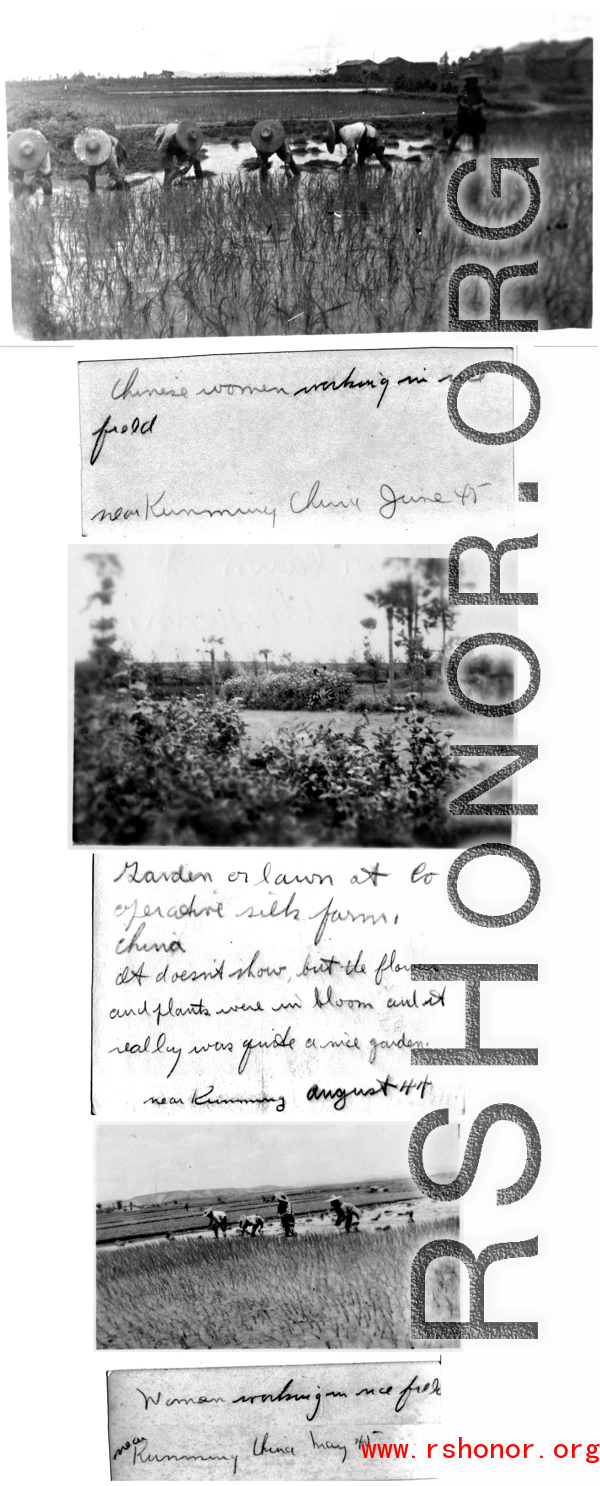 Chinese women working in rice
field
near Kunming China June 45
Garden or lawn at Co
operative silk farm,
China
It doesn't show, but the flowers
and plants were in bloom and it
really was quite a nice garden.
near Kunming August 44
Woman working in rice field
near
Kunming China May 45
www.rshonor.org
RSHONOR.ORG